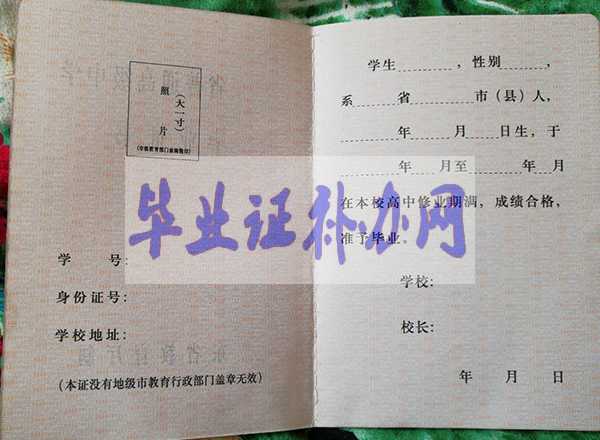 照
片
(大一寸)
(市级教育部门盖钢印)
学 号:
身份证号:
学校地址:
(本证没有地级市教育行政部门盖章无效)
学生 , 性别 ,
系 省 市(县)人,
年 月 日生, 于
年 月至 年 月
在本校高中修业期满, 成绩合格,
准予毕业。
学校:
校长:
年 月 日
毕业证补办网